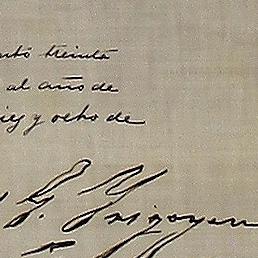 treinta
al año de
y ocho de
G. Yrigoyen